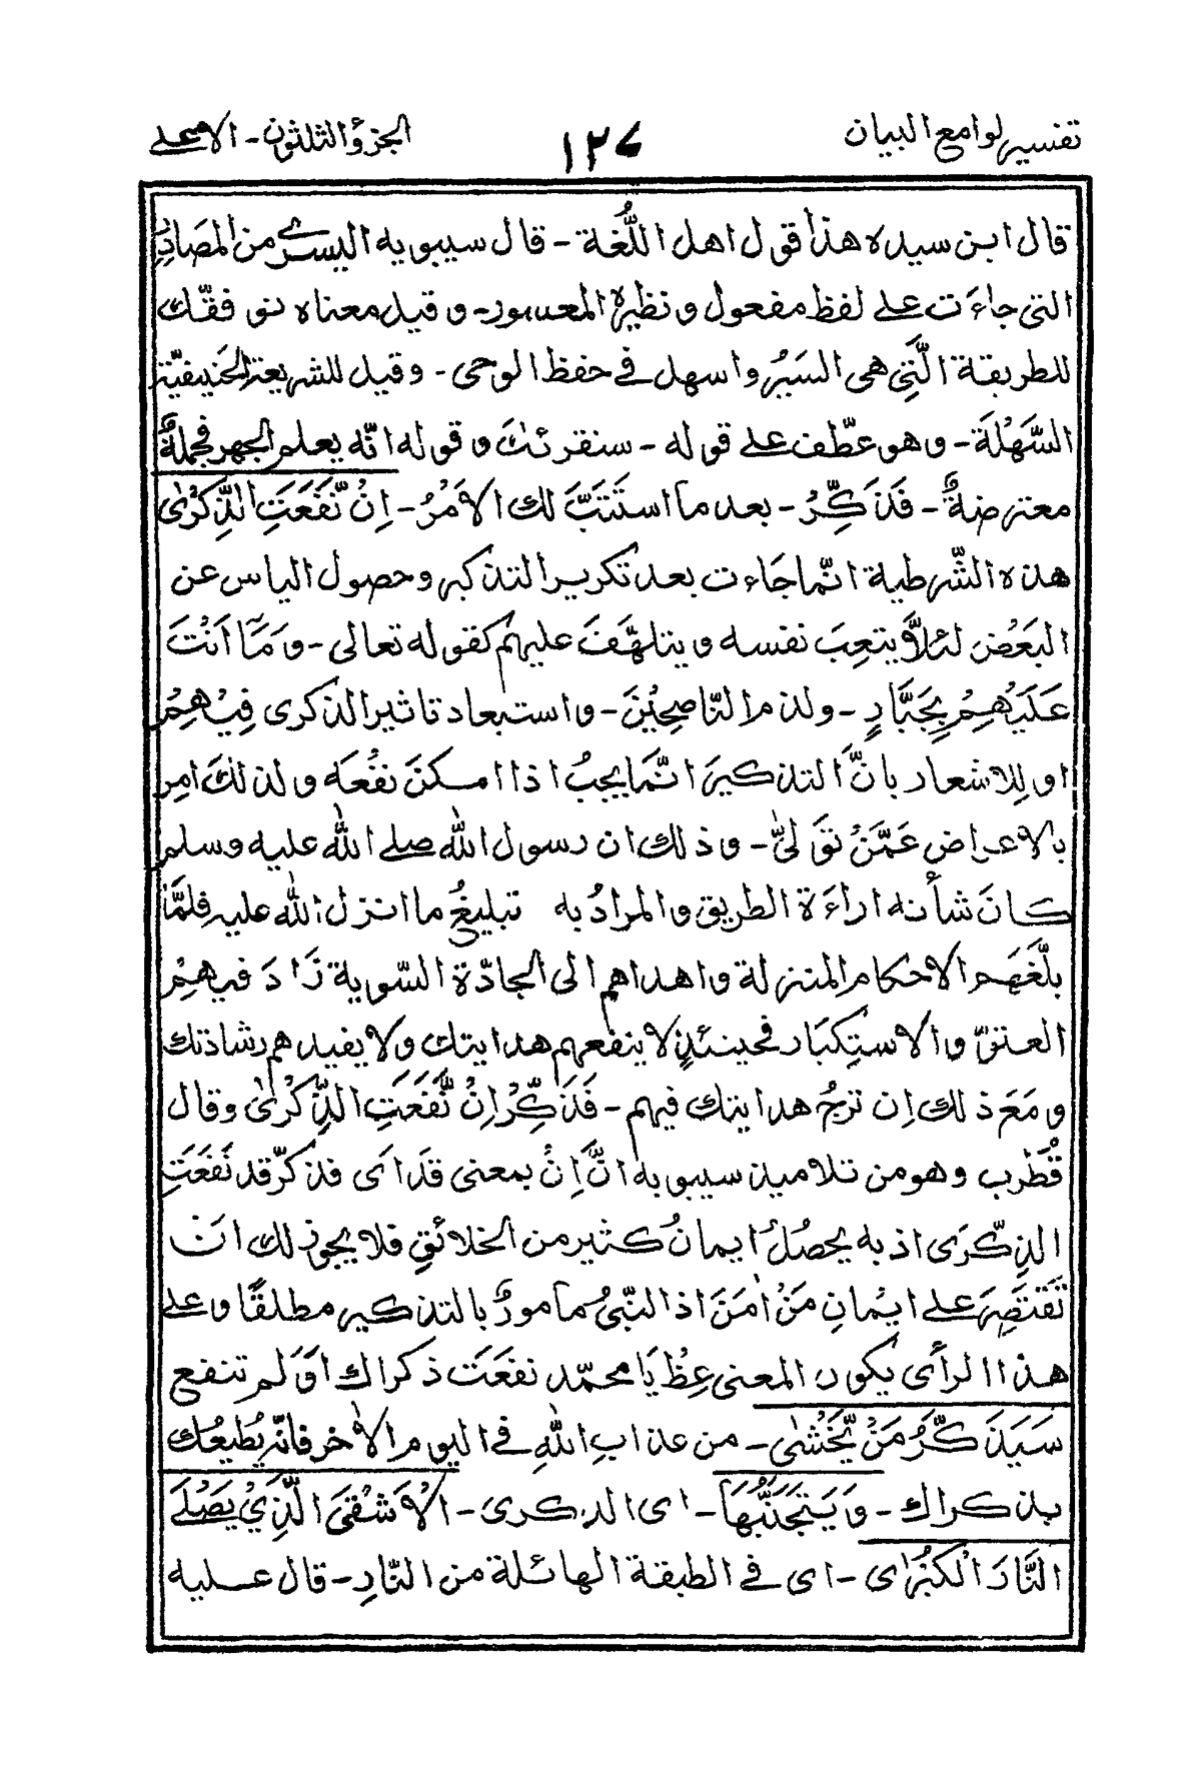 تفسير لوامع البيان
١٢٧
الجزؤ الثلثون - الاعلے
قال ابن سيده هذا قول اهل اللُّغة - قال سيبويه اليسرے من المصَادِرِ
التى جاءَت علے لفظ مفعول و نظيره المعسور - و قيل معناه نوفقّك
للطريقة الَّتِى هى اليَسَرُ و اسهل فے حفظ الوحى - و قيل للشريعة الحَنِيفيّة
السَّهْلَة - وهو عطّف علے قوله - سنقرئك و قوله انّه يعلم الجهر فجملةٌ
معترضةٌ - فَذَكِّرْ - بعد ما استَتَبَّ لك الاَمْرُ - اِنْ نَّفَعَتِ الذِّكْرٰى
هذه الشّرطية انّما جَاءت بعد تكرير التذكير و حصول الياس عن
البَعْض لئلاَّ يتعِبَ نفسه و يتلهّفَ عليهم كقوله تعالى - وَمَآ اَنْتَ
عَلَيْهِمْ بِجَبَّارٍ - ولذم النّاصِحِيْنَ - و استبعاد تاثير الذكرى فِيْهِمْ
او لِلاشعار بانَّ التذكيرَ انّمَا يجبُ اذا امكنَ نفْعَه و لذلكَ امِر
بالاعراض عَمَّنْ تَوَلىّٰ - و ذلك ان رسول الله صلے الله عليه وسلم
كانَ شأنه اراءَة الطريق و المرادُ به تبليغُ ما انزل الله عليه فلمَّا
بلّغَهم الاحكام المنزلة و اهداهم الى الجادّة السّوية زَادَ فيهِمْ
العتوّ و الاستِكبَار فحينئذٍ لا ينفعهم هدايتك ولا يفيدهم رشادتك
و مَعَ ذلك اِن ترجُ هدايتك فيهم - فَذَكِّرْ اِنْ نَّفَعَتِ الذِّكْرٰى وقال
قُطْرب وهو من تلاميذ سيبويه انَّ اِنْ بمعنى قَد اَى فذكرّ قد نَفَعَتِ
الذِكّرَى اذ به يحصُلُ ايمانُ كثير من الخلائقِ فلا يجوز لك ان
تَقتَصِرَ علے ايْمانِ مَنْ اٰمَنَ اذ النبّىُ مامورٌ بالتذكير مطلقًا وعلے
هذا الرأى يكون المعنى عِظْ يَا محمّد نفعَت ذكراك اوَ لم تنفع
سَيَذَكّرُ مَنْ يَّخْشٰى - من عذابِ اللهِ فے اليوم الاٰخر فانّه يُطِيعُك
بذكراك - وَيَتَجَنَّبُهَا - اى الذكرى - الْاَشْقَى الَّذِيْ يَصْلَے
النَّارَ الْكُبْرٰى - اى فے الطبقة الهائلة من النّارِ - قال عليه